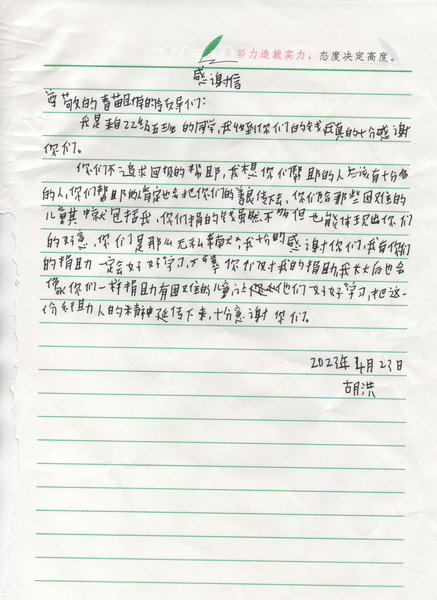 努力造就实力，态度决定高度。
感谢信
尊敬的春苗助学的领导们：
我是来自22级五班的同学，我收到你们的钱我真的十分感谢
你们。
你们不追求回报的帮助，我想你们帮助的人应该有十分多
的人，你们帮助的肯定也会把你们的善良传下去，你们给那些困难的
儿童其中就包括我，你们捐的钱虽然不多但也能体现出你们
的好意，你们是那么无私奉献，我十分的感谢你们，我有你们
的捐助一定会好好学习，不辜你们对我的捐助我长大后也会
像你们一样捐助有困难的儿童，让他们好好学习，把这一
份纤助人的精神延传下来，十分感谢你们。
2023年4月23日
胡洪